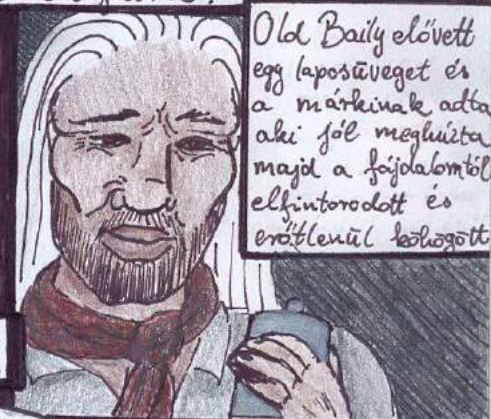 Old Baily elővett
egy laposüveget és
a márkinak adta
aki jól meghúzta
majd a fájdalomtól
elfintorodott és
erőtlenül köhögött